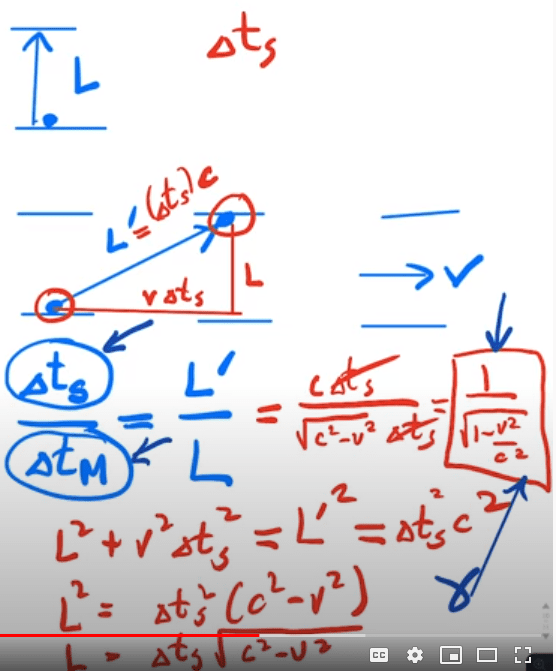 Δts
L
L' = (Δts)c
L
vΔts
→ v
Δts / ΔtM = L' / L = cΔts / √(c²-v²) Δts = 1 / √(1-v²/c²)
L² + v²Δts² = L'² = Δts²c²
γ
L² = Δts²(c²-v²)
L = Δts√(c²-v²)
CC